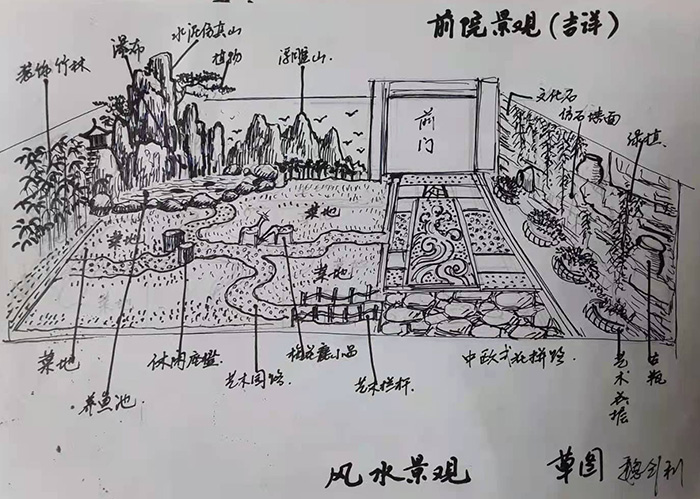 前院景观(吉祥)
装饰竹林
瀑布
水泥仿真山
植物
浮雕山
文化石
仿石墙面
绿植
前门
菜地
菜地
菜地
菜地
养鱼池
休闲座凳
艺术园路
梅花鹿小品
艺术栏杆
中欧式花拼路
艺术花坛
古瓶
风水景观
草图